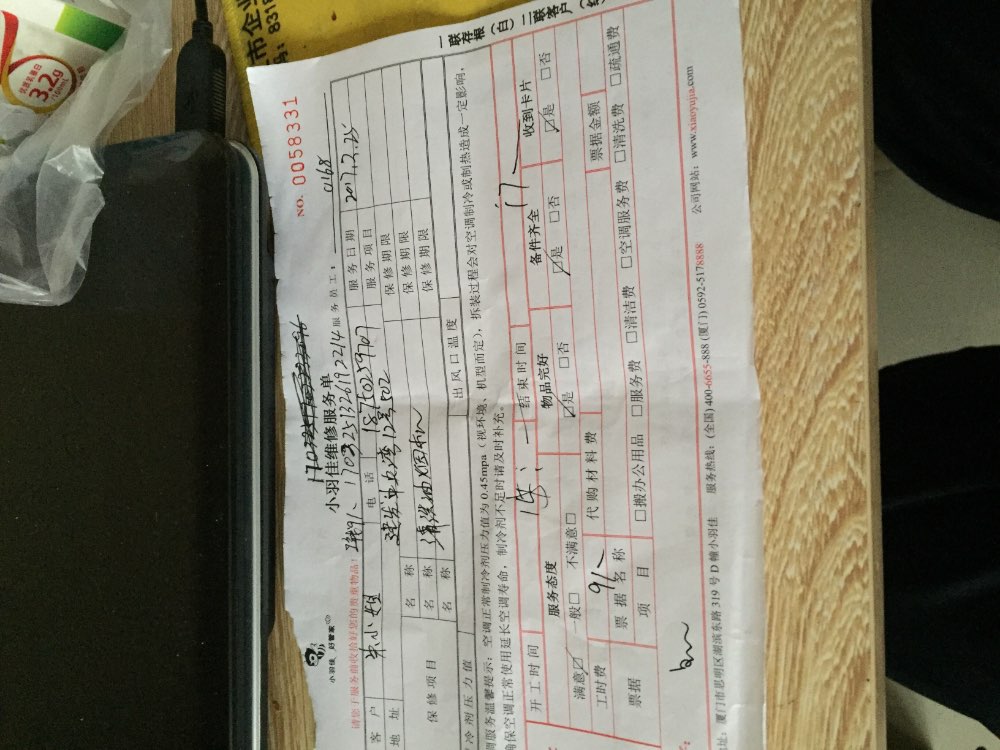 一联存根（白）二联客户（红
市企业
8310
优质蛋白
3.2g
/100mL
NO. 0058331
小羽佳维修服务单
小羽佳，好管家
请您于服务前收拾好您的贵重物品！
17032513261922 14
服务员工：0168
客户 朱小姐 电话 18750259707 服务日期 2017.2.25
地址 建发中央湾12号502 服务项目
保修项目 名称 清洗油烟机 保修期限
名称 保修期限
名称 保修期限
冷剂压力值 出风口温度
调服务温馨提示：空调正常制冷剂压力值为0.45mpa（视环境、机型而定），拆装过程会对空调制冷或制热造成一定影响，
确保空调正常使用延长空调寿命，制冷剂不足时请及时补充。
开工时间 结束时间 17
服务态度 物品完好 备件齐全 收到卡片
满意☑ 一般□ 不满意□ ☑是 □否 ☑是 □否 ☑是 □否
工时费 91 代购材料费
票据 票据名称 票据金额
项目 □搬办公用品 □服务费 □清洁费 □空调服务费 □清洗费 □疏通费
地址：厦门市思明区湖滨东路319号D幢小羽佳 服务热线：(全国) 400-6655-888 (厦门) 0592-5178888 公司网站：www.xiaoyujia.com